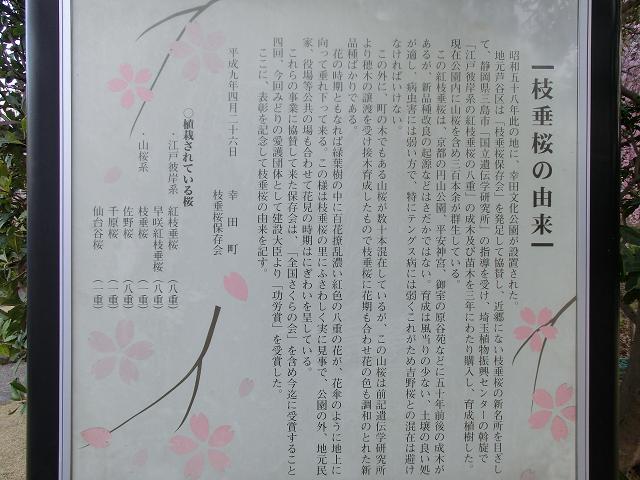 枝垂桜の由来
昭和五十八年此の地に、幸田文化公園が設置された。
地元芦谷区は「枝垂桜保存会」を発足して協賛し、近郷にない枝垂桜の新名所を目ざし
て、静岡県三島市「国立遺伝学研究所」の指導を受け、埼玉植物振興センターの斡旋で
「江戸彼岸系の紅枝垂桜の八重」の成木及び苗木を三年にわたり購入し、育成植樹した。
現在公園内に山桜を含め三百本余が群生している。
この紅枝垂桜は、京都の円山公園、平安神宮、御室の原谷苑などに五十年前後の成木が
あるが、新品種改良の起源などはさだかではない。育成は風当りの少ない、土壌の良い処
が適し、病虫害には弱い方で、特にテングス病には弱くこれがため吉野桜との混在は避け
なければいけない。
この外に、町の木でもある山桜が数十本混在しているが、この山桜は前記遺伝学研究所
より穂木の譲渡を受け接木育成したもので枝垂桜に花期も合わせ花の色も調和のとれた新
品種ばかりである。
花の時期ともなれば緑葉樹の中に百花撩乱濃い紅色の八重の花が、花傘のように地上に
向って垂れ下って来る。この様は枝垂桜の里にふさわしく実に見事で、公園の外、地元民
家、役場等公共の場も合わせて花見の時期はにぎわいを呈している。
これらの事業に協賛して来た保存会は、「全国さくらの会」を含め今迄に受賞すること
四回、今回みどりの愛護団体として建設大臣より「功労賞」を受賞した。
ここに、表彰を記念して枝垂桜の由来を記す。
平成九年四月二十六日
幸田町
枝垂桜保存会
○植栽されている桜
・江戸彼岸系 紅枝垂桜 (八重)
早咲紅枝垂桜 (八重)
枝垂桜 (一重)
・山桜系 佐野桜 (八重)
千原桜 (一重)
仙台谷桜 (一重)